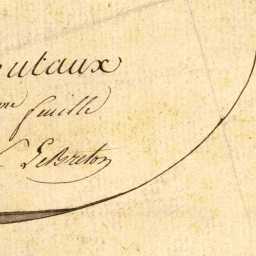 utaux
me feuille
LeBreton